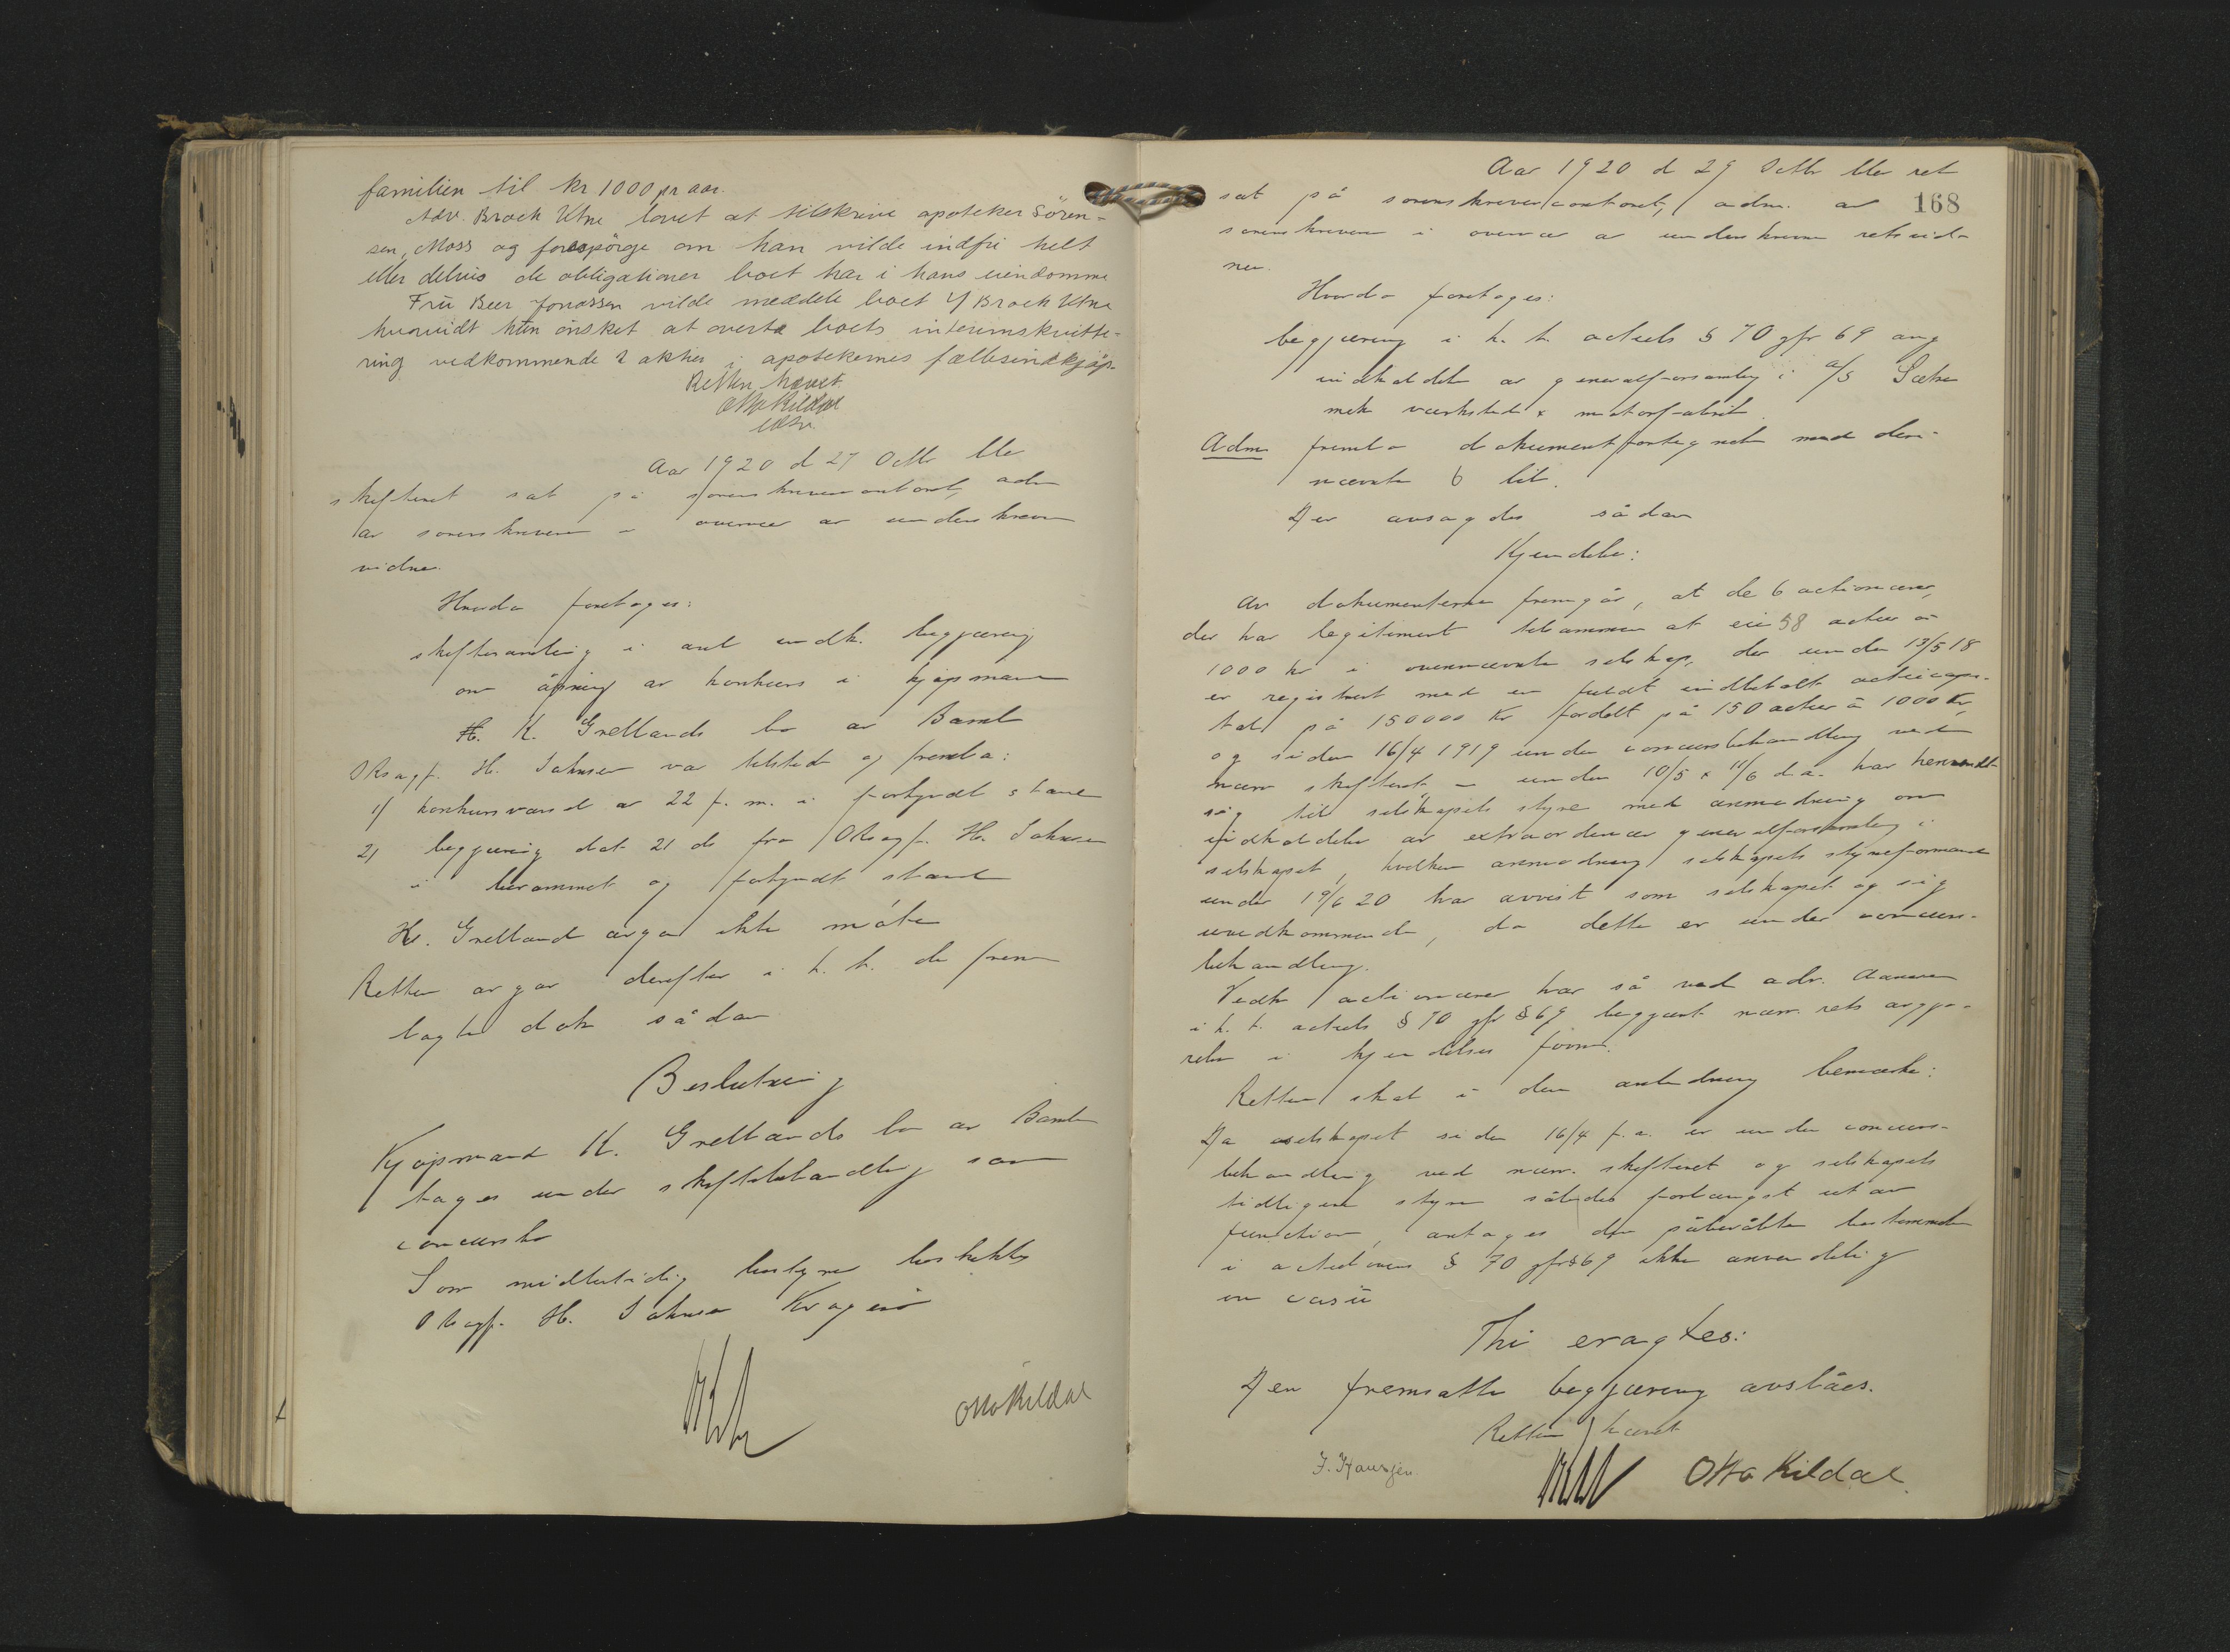 familien til kr 1000 pr aar.
Adv. Broch Utne lovet at tilskrive apoteker Sören-
sen, Moss og forespörge om han vilde indfri helt
eller delvis de obligationer boet har i hans eiendomme
Frü Beer Jonassen vilde meddele boet v/ Broch Utne
hvorvidt hün önsket at overta boets interimskvitte-
ring vedkommende 2 aktier i apotekernes fællesindkjöp.
Retten hævet.
Otto Kildal
Aar 1920 d 27 Octbr ble
skifteret sat på sorenskrivercontoret, adm
av sorenskriveren i overvær av underskrevne
vidne.
Hvorda foretoges:
skiftesamling i anl indk. begjæring
om åpning av konkurs i kjøpmann
H. K. Grellands bo av Bamle
ORsagf. H. Johnsen var tilstede og fremla:
1/ konkursvarsel av 22 f. m. i forkyndt stand
2/ begjæring dat 21 ds fra ORsagf. H. Johnsen
i berammet og forkyndt stand
Hr. Grelland avgav ikke möte
Retten avgav derefter i h. t. de frem
lagte dok sådan
Beslutning
Kjøpmand K. Grellands bo av Bamle
tages under skiftebehandling som
concursbo
Som midlertidig bestyrer beskikkes
ORsagf. H. Johnsen Kragerö
Otto Kildal
Aar 1920 d 29 Octbr ble ret
168
sat på sorenskrivercontoret, adm. av
sorenskriveren i overvær av underskrevne retsvid-
ner.
Hvorda foretoges:
begjæring i h. t. actiels § 70 jfr 69 ang
indkaldelse av generalforsamling i A/S Sætre
mek værksted & motorfabrik.
Adm fremla dokumentfortegnelse med deri
nævnte 6 bil.
Der avsagdes sådan
Kjendelse:
Av dokumenterne fremgår, at de 6 actionærer,
der har legitimert tilsammen at eie 58 actier à
1000 kr i overnævnte selskap, der under 13/5 18
er registrert med en fuldt indbetalt actiecapi-
tal på 150000 kr fordelt på 150 actier à 1000 kr,
og siden 16/4 1919 under concursbehandling ved
nærv skifteret – under 10/5 & 11/6 d.a. har henvendt
sig til selskapets styre med anmodning om
indkaldelse av extraordinær generalforsamling i
selskapet, hvilken anmodning selskapets styreformand
under 19/6 20 har avvist som selskapet og sig
uvedkommende, da dette er under concurs-
behandling.
Vedk actionærer har så ved adv. Aanesen
i h. t. actiels § 70 jfr § 69 begjært nærv. rets avgjö-
relse i kjendelses form.
Retten skal i den anledning bemærke:
Da selskapet siden 16/4 f.a. er under concurs-
behandling ved nærv. skifteret og selskapets
tidligere styre således forlængst ut av
function, antages den påberåbte bestemmelse
i actielovens § 70 jfr § 69 ikke anvendelig
in casü
Thi eragtes:
Den fremsatte begjæring avslåes.
Retten hævet
Otto Kildal.